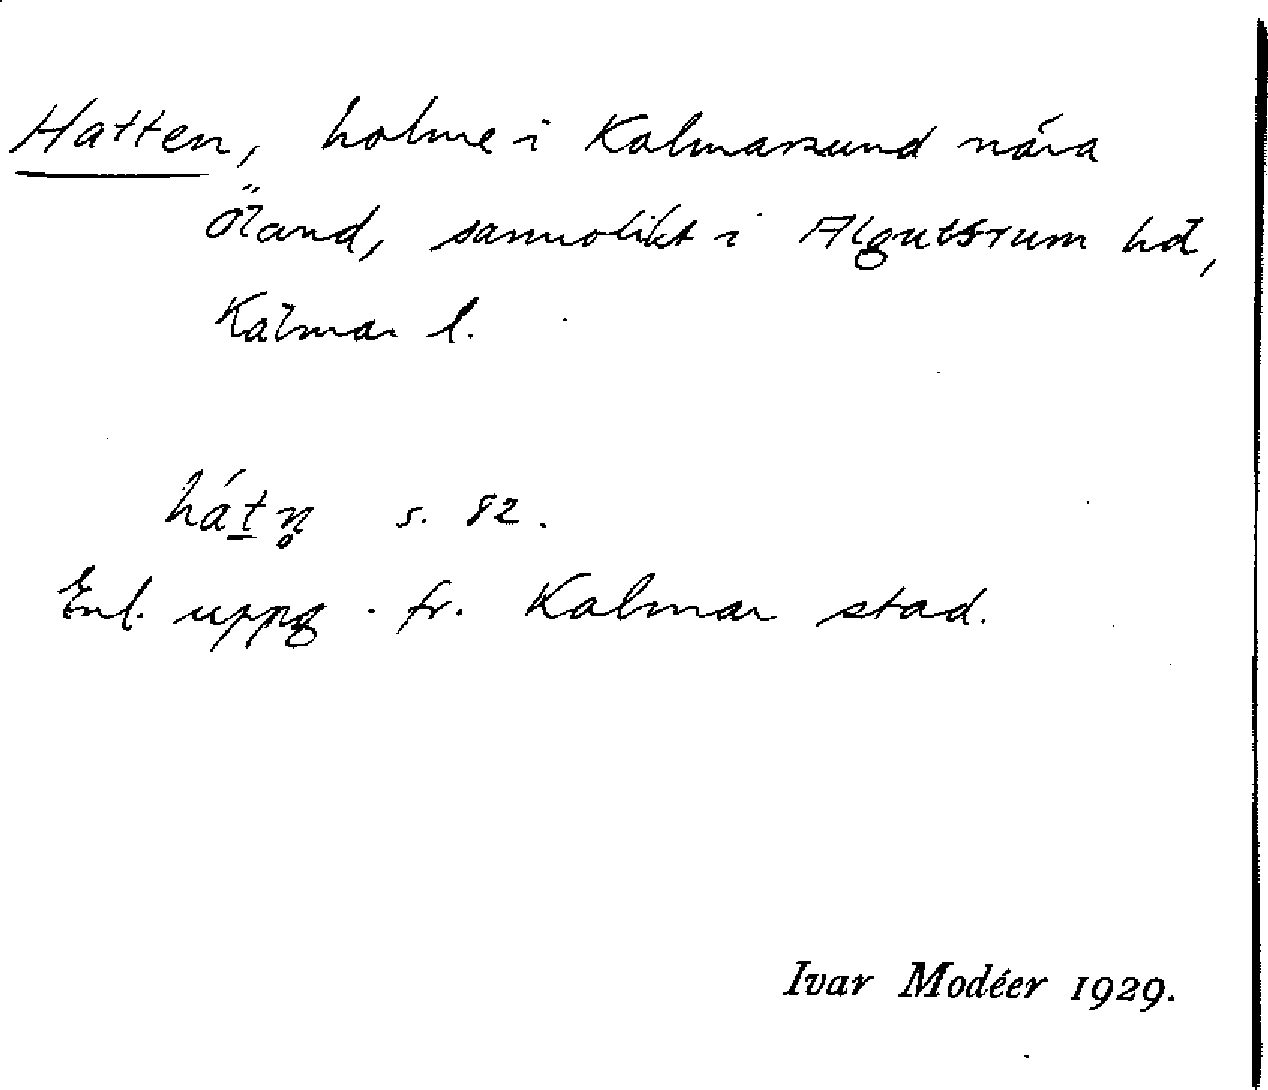 Hatten, holme i Kalmarsund nära
Öland, sannolikt i Algutsrum hd,
Kalmar l.
hát̲n̥ s. 82.
Enl. uppg. fr. Kalmar stad.
Ivar Modéer 1929.